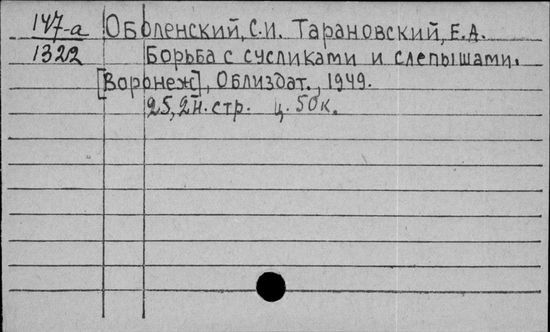 147-а Оболенский, С.И. Тарановский, Е.А.
1322 Борьба с сусликами и слепышами.
[Воронеж], Облиздат., 1949.
25, 2н. стр. ц. 50к.